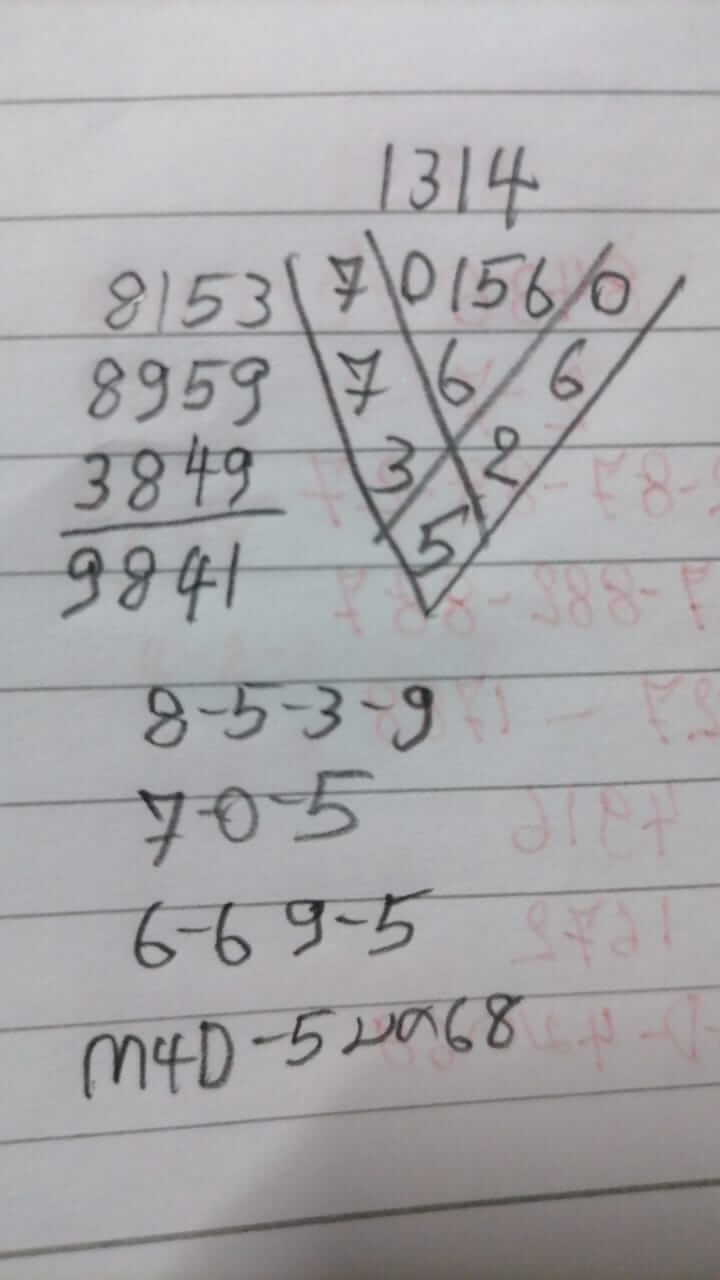 1314
8153 7 0156 0
8959 7 6 6
3849 3 2
9841 5
8-5-3-9
7-0-5
6-6 9-5
M4D-5 68